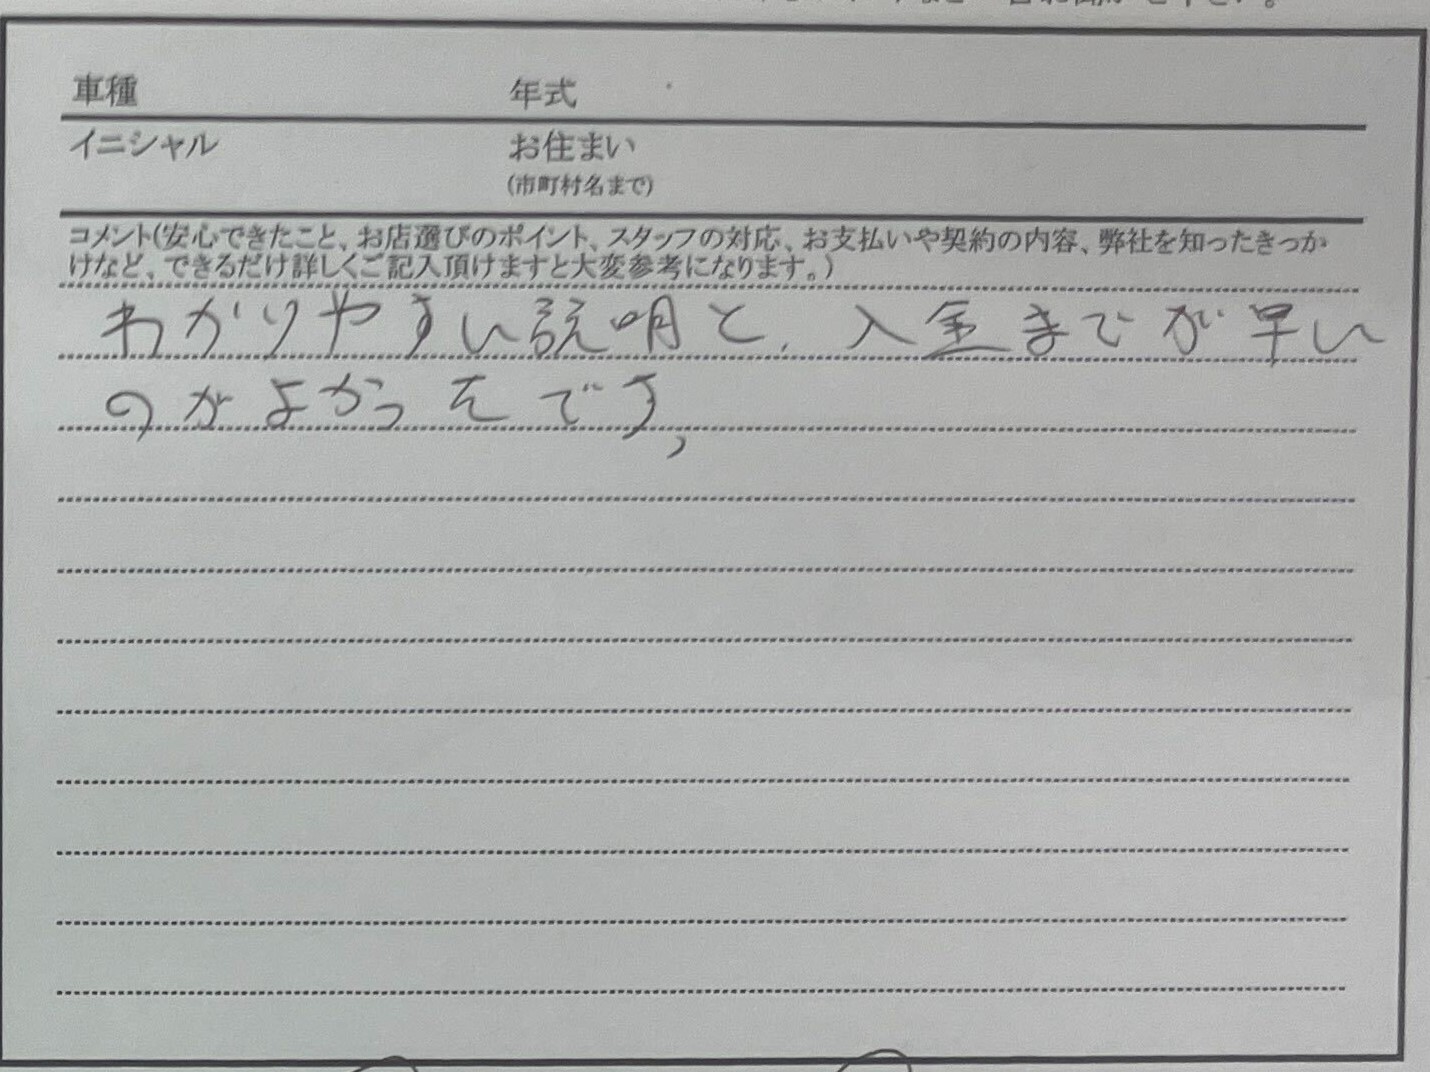 車種 年式
イニシャル お住まい
(市町村名まで)
コメント(安心できたこと、お店選びのポイント、スタッフの対応、お支払いや契約の内容、弊社を知ったきっか
けなど、できるだけ詳しくご記入頂けますと大変参考になります。)
わかりやすい説明と、入金までが早い
のがよかったです、